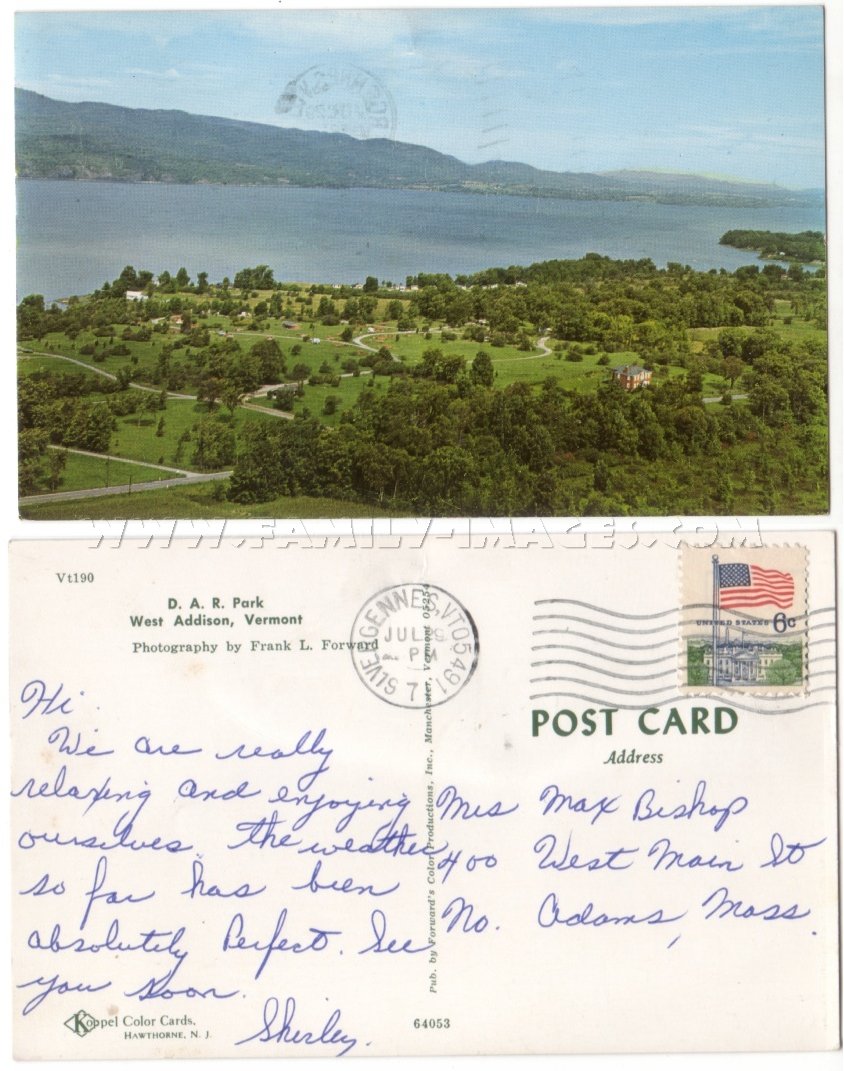 WWW.FAMILY-IMAGES.COM
Vt190
D. A. R. Park
West Addison, Vermont
Photography by Frank L. Forward
VERGENNES, VT 05491
JUL 29
PM
UNITED STATES 6c
POST CARD
Address
Hi.
We are really
relaxing and enjoying
ourselves. The weather
so far has been
absolutely Perfect. See
you soon.
Shirley.
Mrs Max Bishop
400 West Main St
No. Adams, Mass.
Pub. by Forward's Color Productions, Inc., Manchester, Vermont 05254
Koppel Color Cards.
HAWTHORNE, N. J.
64053